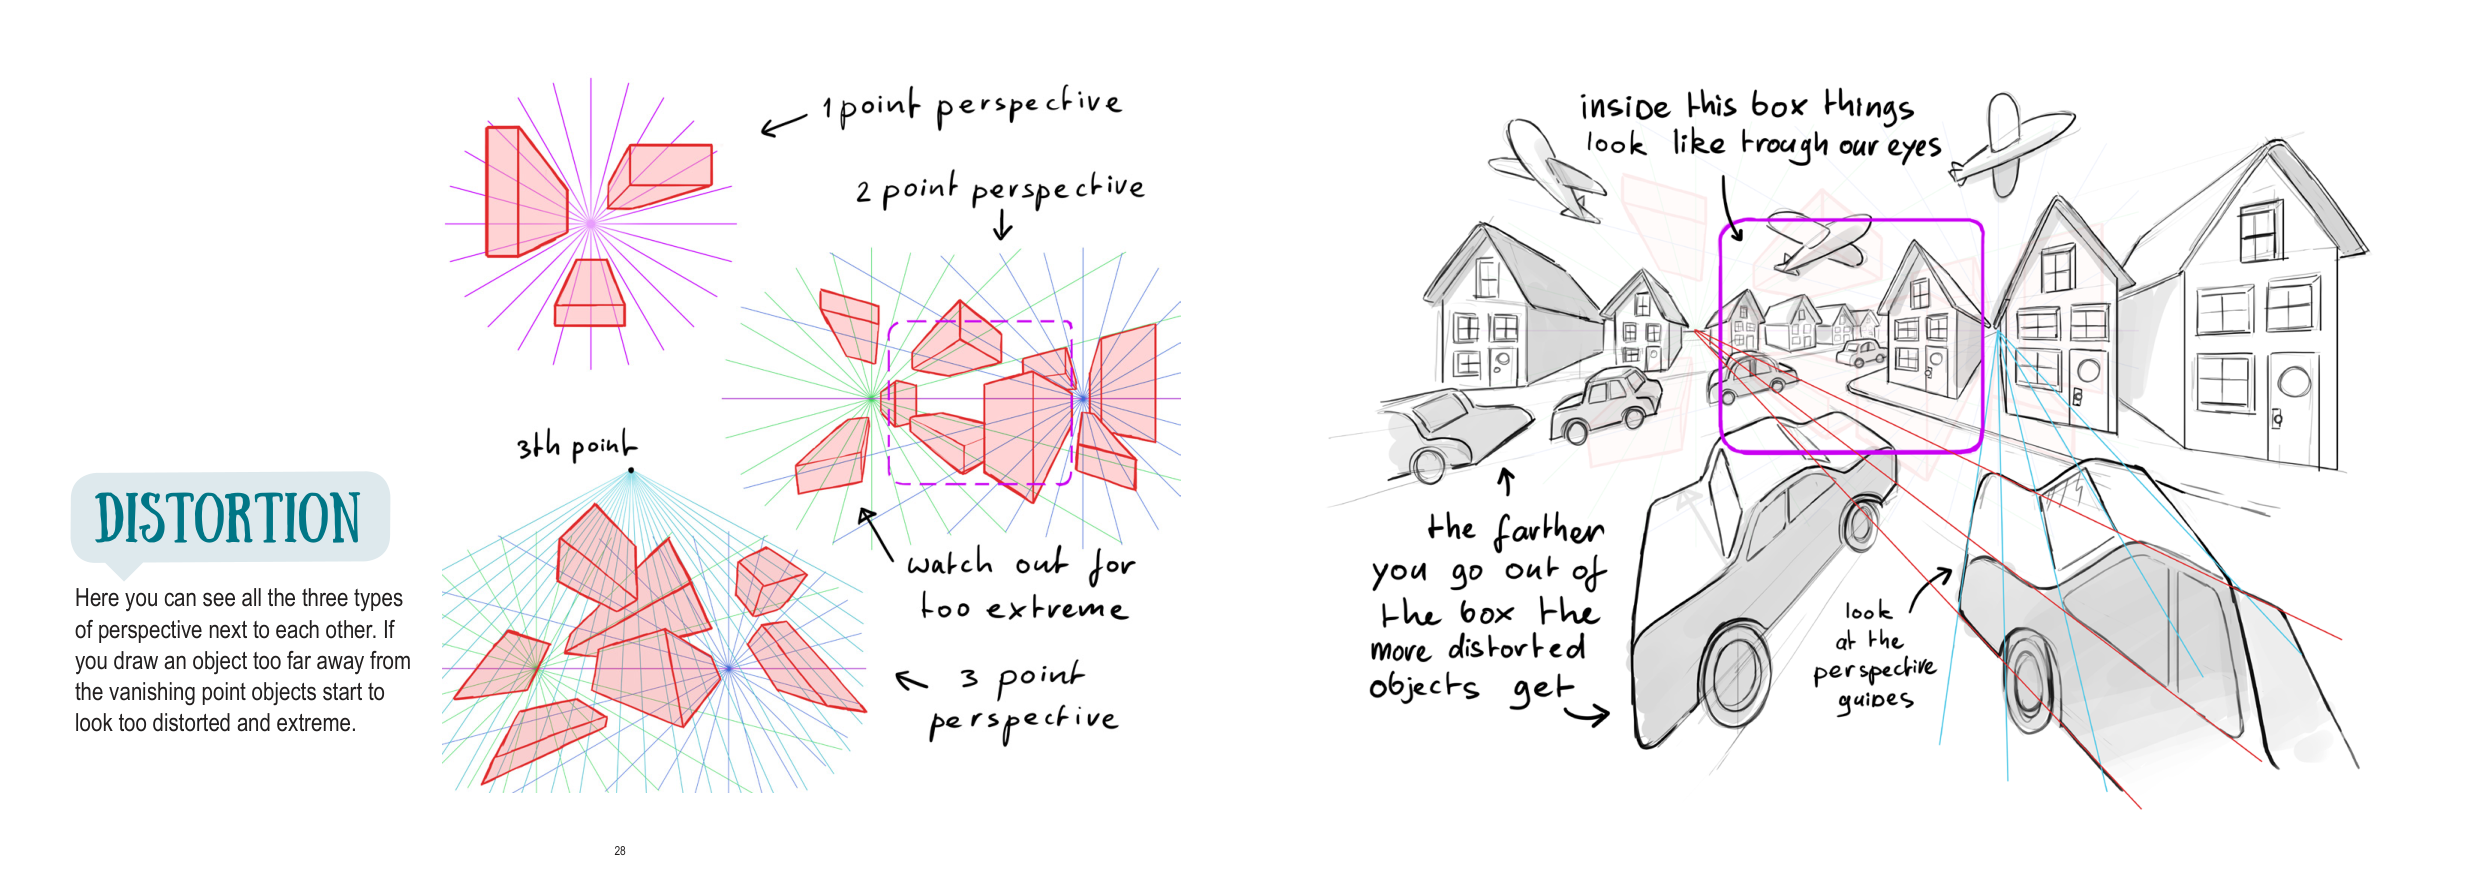 DISTORTION
Here you can see all the three types
of perspective next to each other. If
you draw an object too far away from
the vanishing point objects start to
look too distorted and extreme.
1 point perspective
2 point perspective
3th point
watch out for
too extreme
3 point
perspective
28
inside this box things
look like trough our eyes
the farther
you go out of
the box the
more distorted
objects get
look
at the
perspective
guides